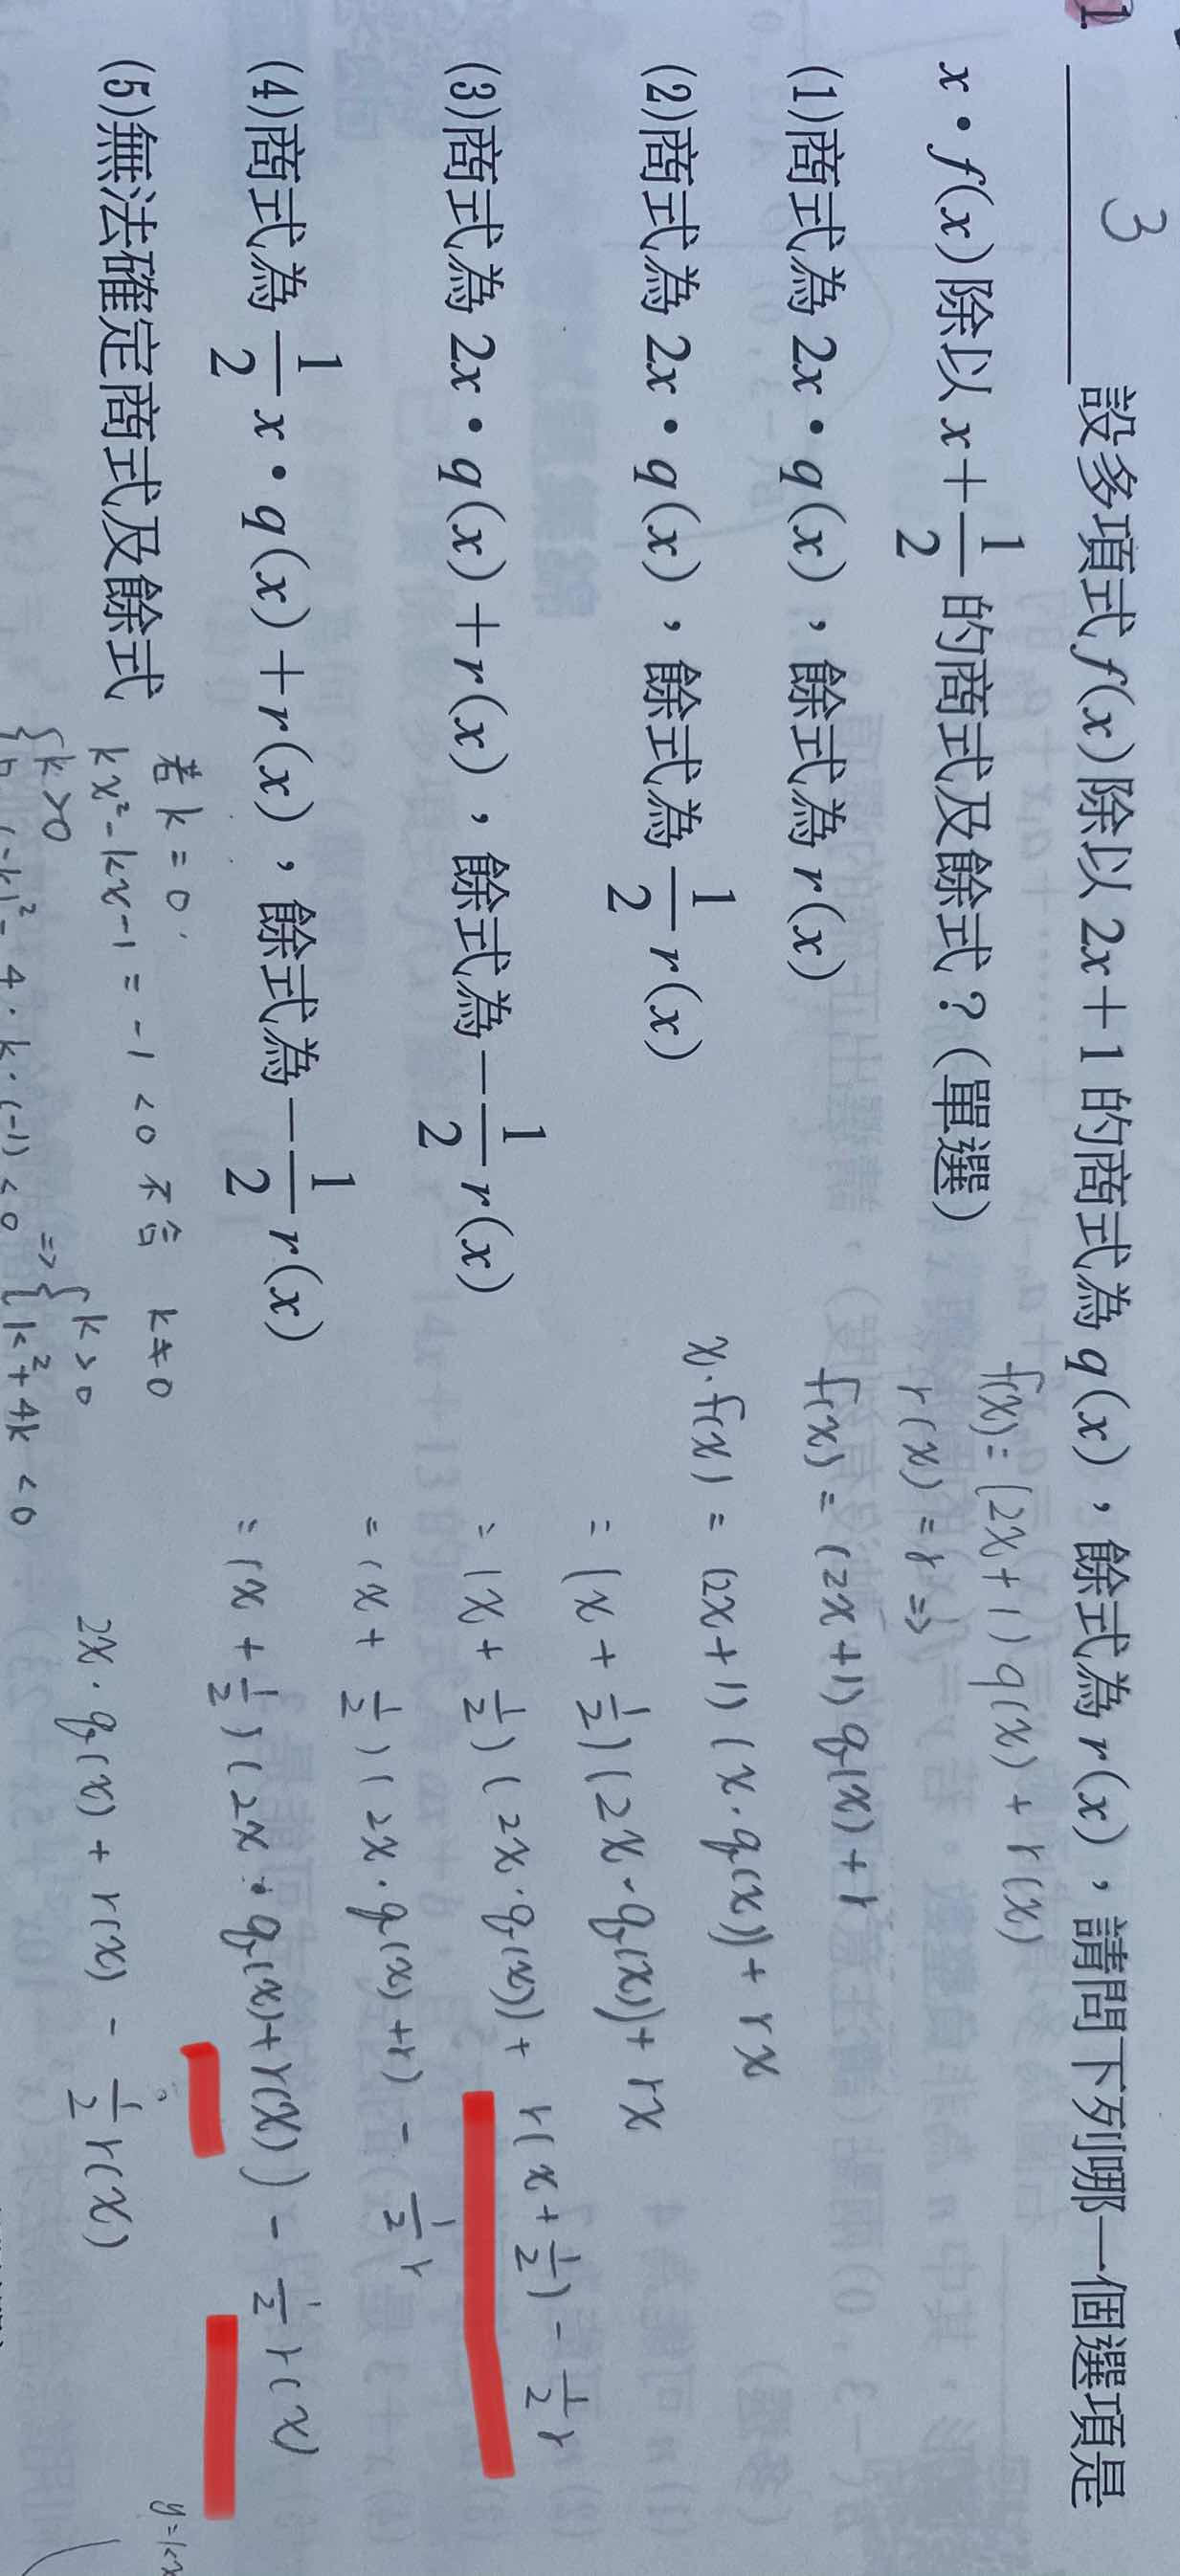 1. 3 設多項式 f(x) 除以 2x+1 的商式為 q(x)，餘式為 r(x)，請問下列哪一個選項是
x·f(x) 除以 x+1/2 的商式及餘式？(單選)
(1)商式為 2x·q(x)，餘式為 r(x)
(2)商式為 2x·q(x)，餘式為 1/2 r(x)
(3)商式為 2x·q(x)+r(x)，餘式為 -1/2 r(x)
(4)商式為 1/2 x·q(x)+r(x)，餘式為 -1/2 r(x)
(5)無法確定商式及餘式
f(x)=(2x+1)q(x)+r(x)
r(x)=r⇒
f(x)=(2x+1)q(x)+r
x·f(x)=(2x+1)(x·q(x))+rx
=(x+1/2)(2x·q(x))+rx
=(x+1/2)(2x·q(x))+r(x+1/2)-1/2 r
=(x+1/2)(2x·q(x)+r)-1/2 r
=(x+1/2)(2x·q(x)+r(x))-1/2 r(x)
2x·q(x)+r(x) -1/2 r(x)
若 k=0,
kx²-kx-1=-1<0 不合 k≠0
{k>0
(-k)²-4·k·(-1)<0 ⇒ {k>0
k²+4k<0